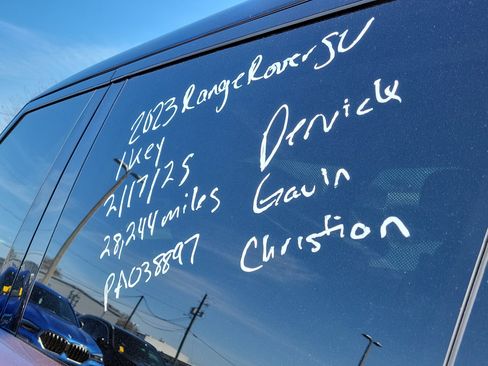 2023 Range Rover SV
1 Key
2/17/25
28,244 miles
PA038897
Derrick
Gavin
Christian